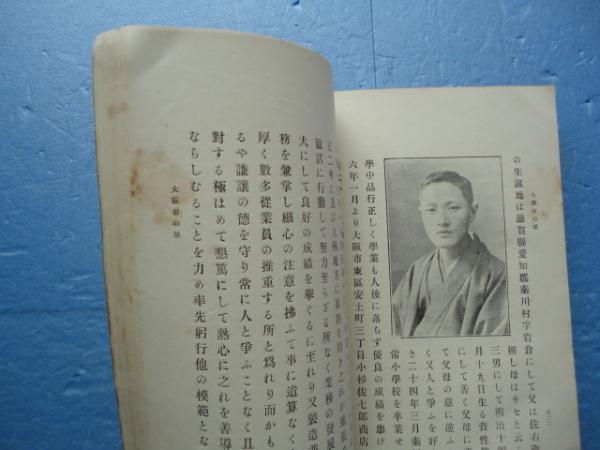 大阪府の部
の生誕地は滋賀縣愛知郡秦川村字岩倉にして父は佐右
稱し母はキセと云
三男にして明治十
月十九日生る資性
にして善く父母に
て父母の意に逆
く又人と爭ふを好
き二十四年三月秦
常小學校を卒業せ
學中品行正しく學業も人後に落ちず優良の成績を擧げ
六年一月より大阪市東區安土町三丁目小杉佐七郞商店
正二年に及び九州地方に販路を開き之れが擴張
敏活に行動して努力至らざる所なく業務の發展
大にして良好の成績を擧ぐるに至れり又製造並
務を兼掌し細心の注意を拂ふて事に遺算なく
厚く數多從業員の推重する所と爲れり而かも
るや謙讓の德を守り常に人と爭ふことなく且
對する極はめて懇篤にして熱心に之れを善導
ならしむることを力め率先躬行他の模範とな
大阪府の部